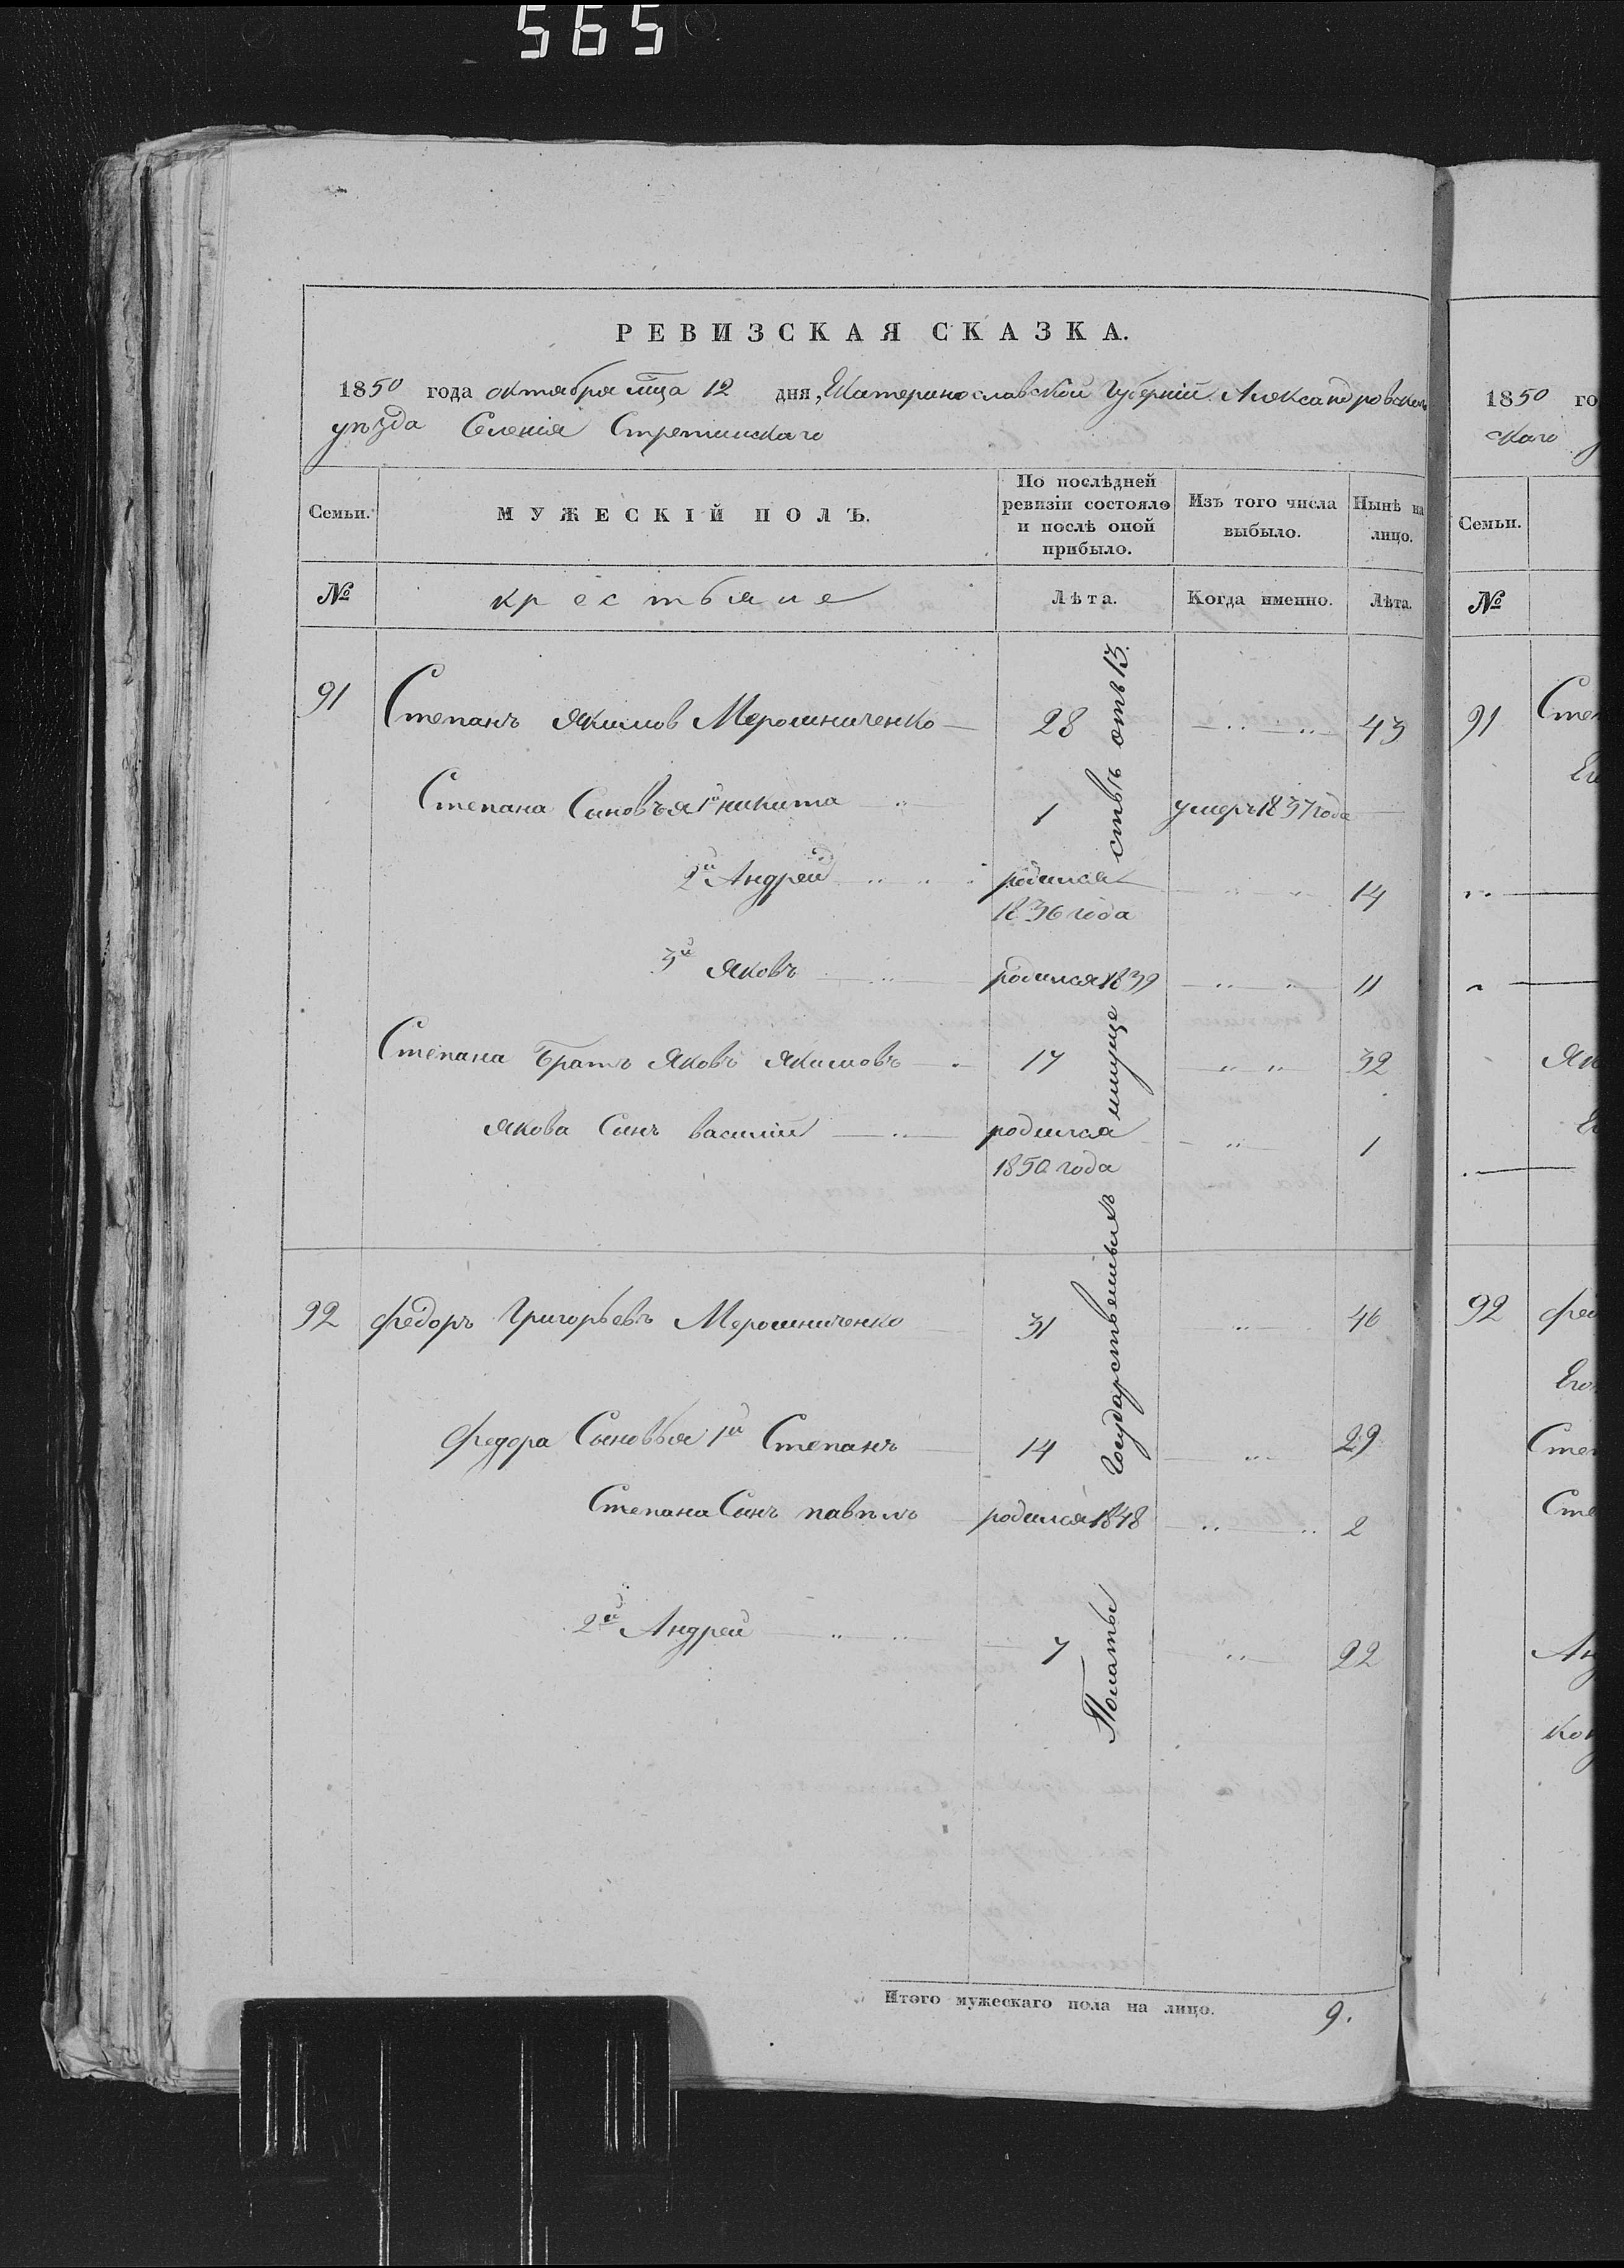 565
РЕВИЗСКАЯ СКАЗКА.
1850 года октября мца 12 дня, Екатеринославской Губерніи Александровскаго
уѣзда Селенія Стретинскаго
Семьи.
МУЖЕСКІЙ ПОЛЪ.
По послѣдней ревизіи состояло и послѣ оной прибыло.
Изъ того числа выбыло.
Нынѣ на лицо.
№
крестьяне
Лѣта.
Когда именно.
Лѣта.
91 Степанъ Якимов Мерошниченко 28 43
Степана Сыновъя 1й никита 1 умеръ 1837 года
2й Андрей родился 14
1836 года
3й Яковъ родился 1839 11
Степана Братъ Яковъ Якимовъ 17 32
Якова Сынъ василій родился 1
1850 года
92 федоръ Григорьевъ Мерошниченко 31 46
федора Сыновья 1й Степанъ 14 29
Степана Сынъ павилъ родился 1848 2
2й Андрей 7 22
Полаты Государственныхъ имуще ствъ отъ 13.
Итого мужескаго пола на лицо. 9.
1850 го
скаго
Семьи.
№
91 Степ
Як
92 фед
Его
Степ
Сте
Ан